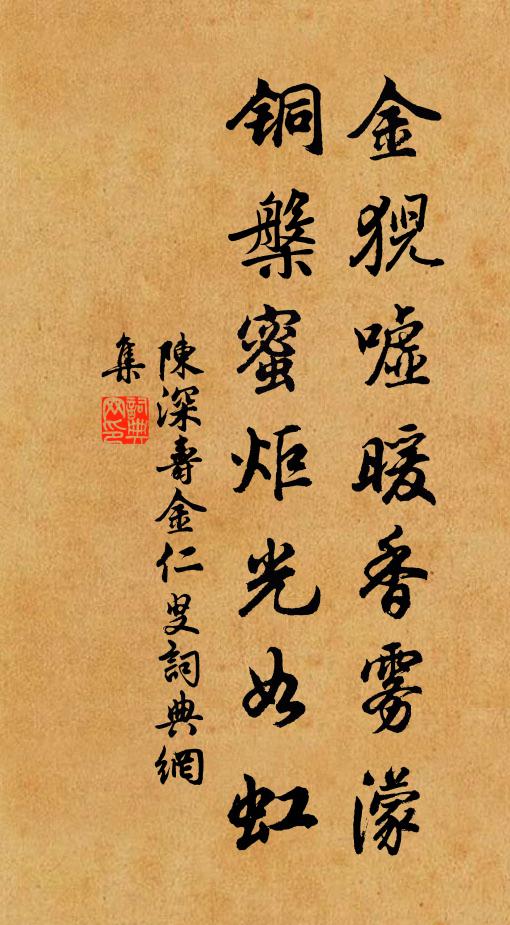 金猊噓暖香雾濛
铜槃蜜炬光如虹
陳深壽金仁叟詞典網
集
詞典
网印